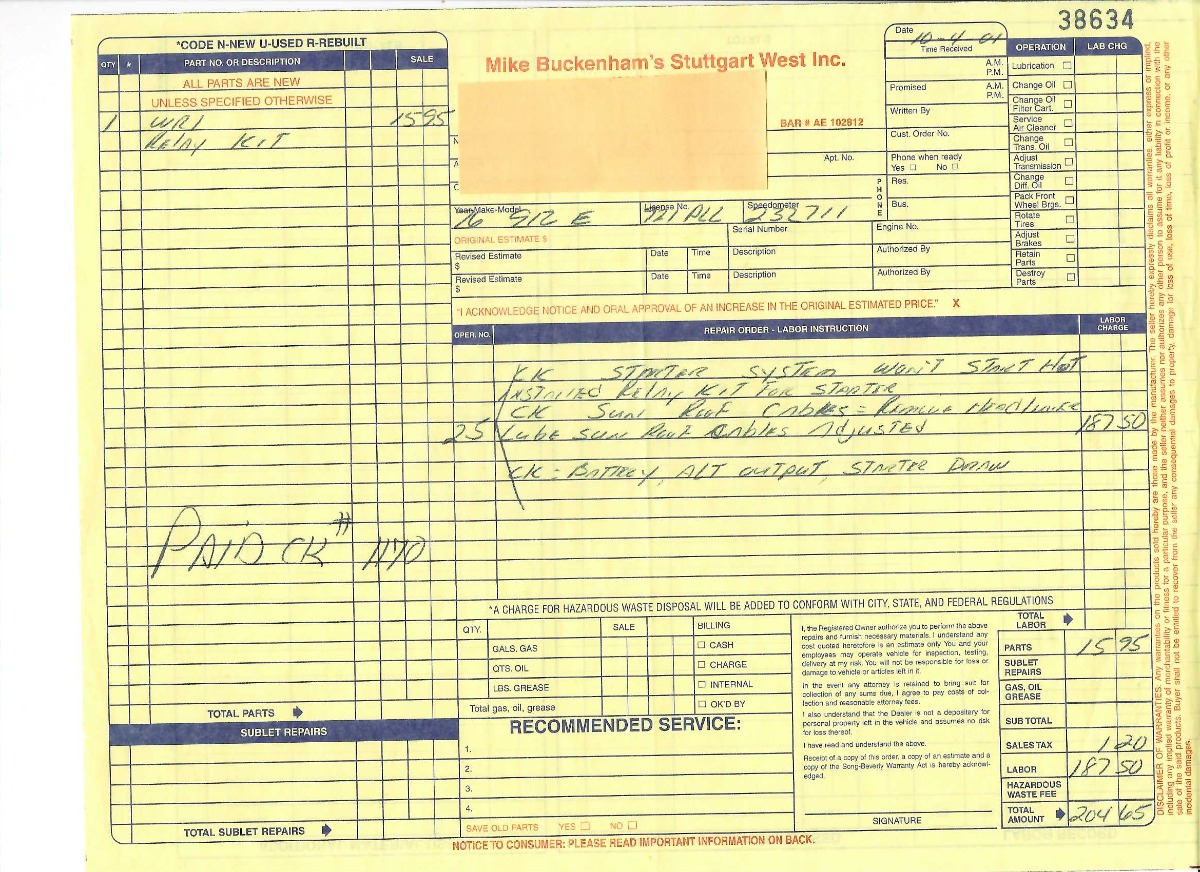 38634
*CODE N-NEW U-USED R-REBUILT
QTY # PART NO. OR DESCRIPTION SALE
ALL PARTS ARE NEW
UNLESS SPECIFIED OTHERWISE
1 WR1 15 95
RELAY KIT
PAID CK # 1170
TOTAL PARTS
SUBLET REPAIRS
TOTAL SUBLET REPAIRS
Mike Buckenham's Stuttgart West Inc.
BAR # AE 102812
Apt. No.
Date 10-4-01
Time Received A.M.
P.M.
Promised A.M.
P.M.
Written By
Cust. Order No.
Phone when ready
Yes No
PHONE
Res.
Bus.
OPERATION LAB CHG
Lubrication
Change Oil
Change Oil
Filter Cart.
Service
Air Cleaner
Change
Trans. Oil
Adjust
Transmission
Change
Diff. Oil
Pack Front
Wheel Brgs.
Rotate
Tires
Adjust
Brakes
Retain
Parts
Destroy
Parts
Year-Make-Model 76 912 E
License No. 121 PLL
Speedometer 232711
Serial Number
Engine No.
ORIGINAL ESTIMATE $
Revised Estimate
$
Date Time Description Authorized By
Revised Estimate
$
Date Time Description Authorized By
"I ACKNOWLEDGE NOTICE AND ORAL APPROVAL OF AN INCREASE IN THE ORIGINAL ESTIMATED PRICE." X
OPER. NO. REPAIR ORDER - LABOR INSTRUCTION LABOR
CHARGE
CK STARTER SYSTEM WON'T START HOT
INSTALLED RELAY KIT FOR STARTER
CK SUN ROOF CABLES = REMOVE HEADLINER
25 LUBE SUN ROOF CABLES ADJUSTED 187 50
CK = BATTERY, ALT OUTPUT, STARTER DRAW
*A CHARGE FOR HAZARDOUS WASTE DISPOSAL WILL BE ADDED TO CONFORM WITH CITY, STATE, AND FEDERAL REGULATIONS
QTY. SALE
GALS. GAS
QTS. OIL
LBS. GREASE
Total gas, oil, grease
BILLING
CASH
CHARGE
INTERNAL
OK'D BY
RECOMMENDED SERVICE:
1.
2.
3.
4.
SAVE OLD PARTS YES NO
I, the Registered Owner authorize you to perform the above
repairs and furnish necessary materials. I understand any
cost quoted heretofore is an estimate only You and your
employees may operate vehicle for inspection, testing,
delivery at my risk. You will not be responsible for loss or
damage to vehicle or articles left in it.
In the event any attorney is retained to bring suit for
collection of any sums due, I agree to pay costs of col-
lection and reasonable attorney fees.
I also understand that the Dealer is not a depositary for
personal property left in the vehicle and assumes no risk
for loss thereof.
I have read and understand the above.
Receipt of a copy of this order, a copy of an estimate and a
copy of the Song-Beverly Warranty Act is hereby acknowl-
edged.
SIGNATURE
TOTAL
LABOR
PARTS 15 95
SUBLET
REPAIRS
GAS, OIL
GREASE
SUB TOTAL
SALES TAX 1 20
LABOR 187 50
HAZARDOUS
WASTE FEE
TOTAL
AMOUNT 204 65
NOTICE TO CONSUMER: PLEASE READ IMPORTANT INFORMATION ON BACK.
DISCLAIMER OF WARRANTIES. Any warranties on the products sold hereby are those made by the manufacturer. The seller hereby expressly disclaims all warranties, either express or implied,
including any implied warranty of merchantability or fitness for a particular purpose, and the seller neither assumes nor authorizes any other person to assume for it any liability in connection with the
sale of the said products. Buyer shall not be entitled to recover from the seller any consequential damages to property, damage for loss of use, loss of time, loss of profit or income, or any other
incidental damages.